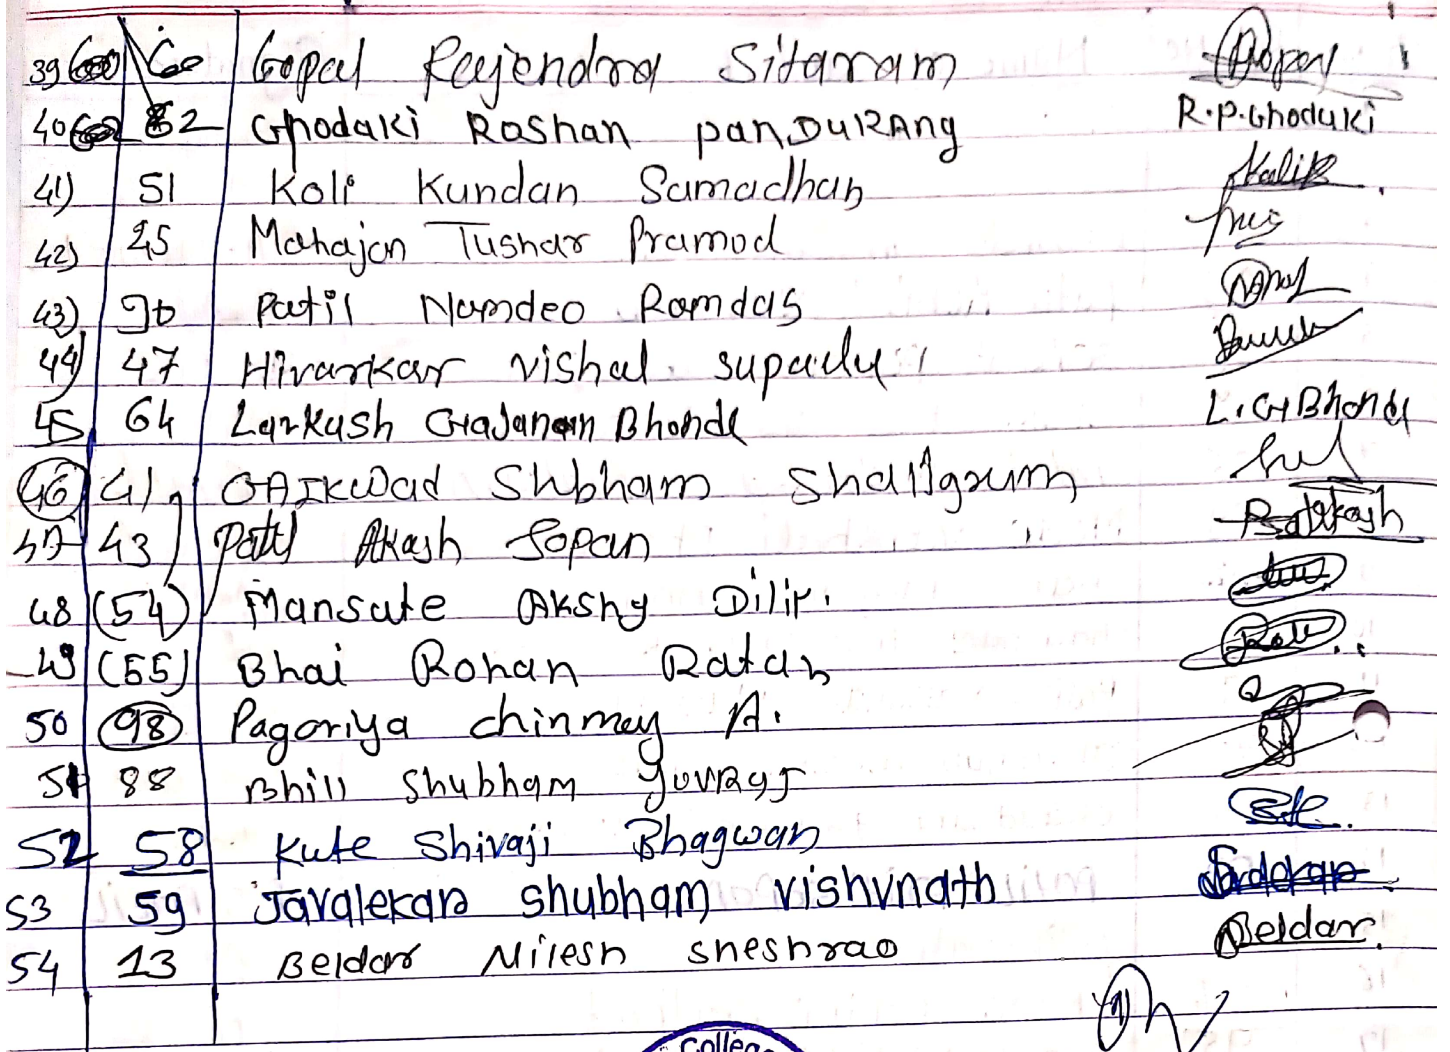 39 60 Gopal Rajendra Sitaram
40 62 Ghodaki Roshan panDURAng R.P.Ghodaki
41) 51 Koli Kundan Samadhan
42) 25 Mahajan Tushar Pramod
43) 90 Patil Namdeo Ramdas
44) 47 Hivarkar vishal supadu
45 64 Lavkush Gajanan Bhonde L.G Bhonde
46 41 GAIKWad Shbham Shaligram
47 43 Patil Akash Sopan
48 (54) Mansute Akshy Dilip.
49 (55) Bhai Rohan Ratan
50 98 Pagariya chinmay A.
51 88 Bhill Shubham YuvRaj
52 58 Kute Shivaji Bhagwan
53 59 Javalekar shubham vishvnath Javalekar
54 13 Beldar Nilesh sheshrao Beldar.
College